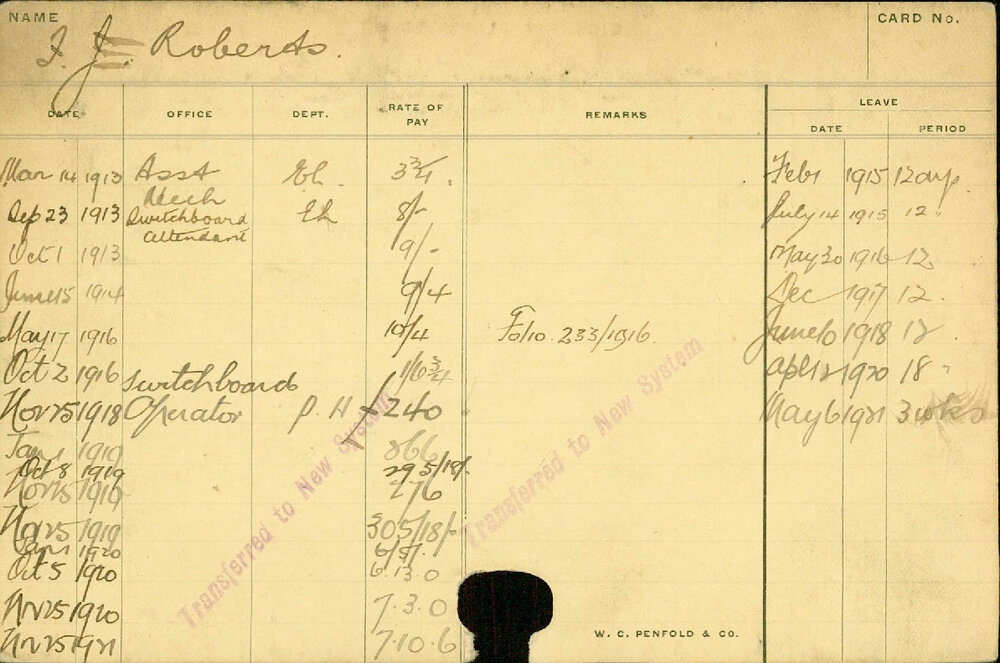 NAME
F. J. Roberts.
CARD No.
DATE OFFICE DEPT. RATE OF PAY REMARKS LEAVE
DATE PERIOD
Mar 14 1913 Asst El. 3¾. Feb 1 1915 12 days.
Mech
Sep 23 1913 Switchboard El 8/- July 14 1915 12 "
Attendant
Oct 1 1913 9/- May 30 1916 12
June 15 1914 9/4 Dec 1917 12.
May 17 1916 10/4 Folio 233/1916. June 10 1918 12
Oct 2 1916 1/6¾ Apl 12 1920 18 "
Switchboard
Nov 25 1918 Operator P. H £240 May 6 1921 3 wks
Jan 1 1919 266
Oct 8 1919 295/18/-
Nov 25 1919 276
Nov 25 1919 305/18/-
Jan 1 1920
Oct 5 1920 6.13.0
Nov 25 1920 7.3.0
Nov 25 1921 7.10.6
Transferred to New System
Transferred to New System
W. C. PENFOLD & CO.